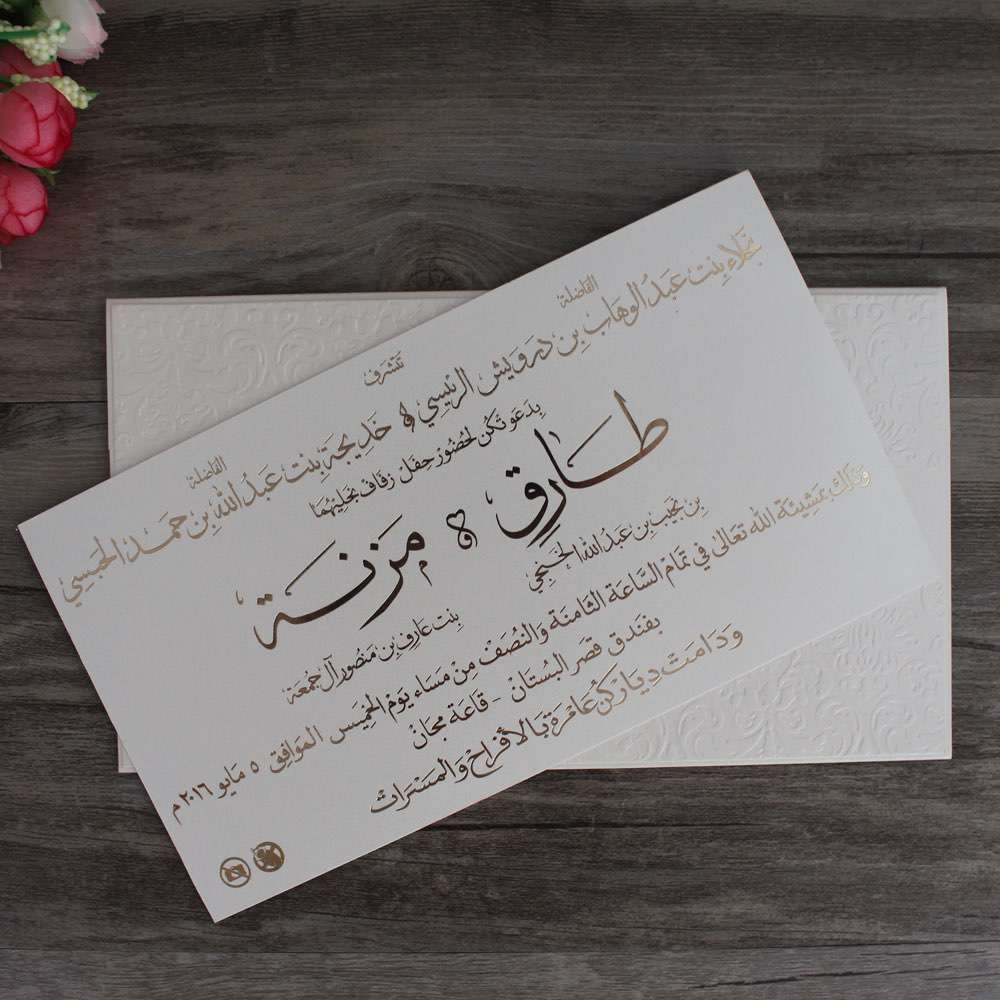 تتشرف
الفاضلة
الفاضلة
نجلاء بنت عبد الوهاب بن درويش الرئيسي & خديجة بنت عبد الله بن حمد الحبسي
بدعوتكن لحضور حفل زفاف نجليهما
طارق & مزنة
بن نجيب بن عبد الله الخنجي
بنت عارف بن منصور آل جمعة
وذلك بمشيئة الله تعالى في تمام الساعة الثامنة والنصف من مساء يوم الخميس الموافق ٥ مايو ٢٠١٦ م
بفندق قصر البستان - قاعة مجان
ودامت دياركن عامرة بالأفراح والمسرات